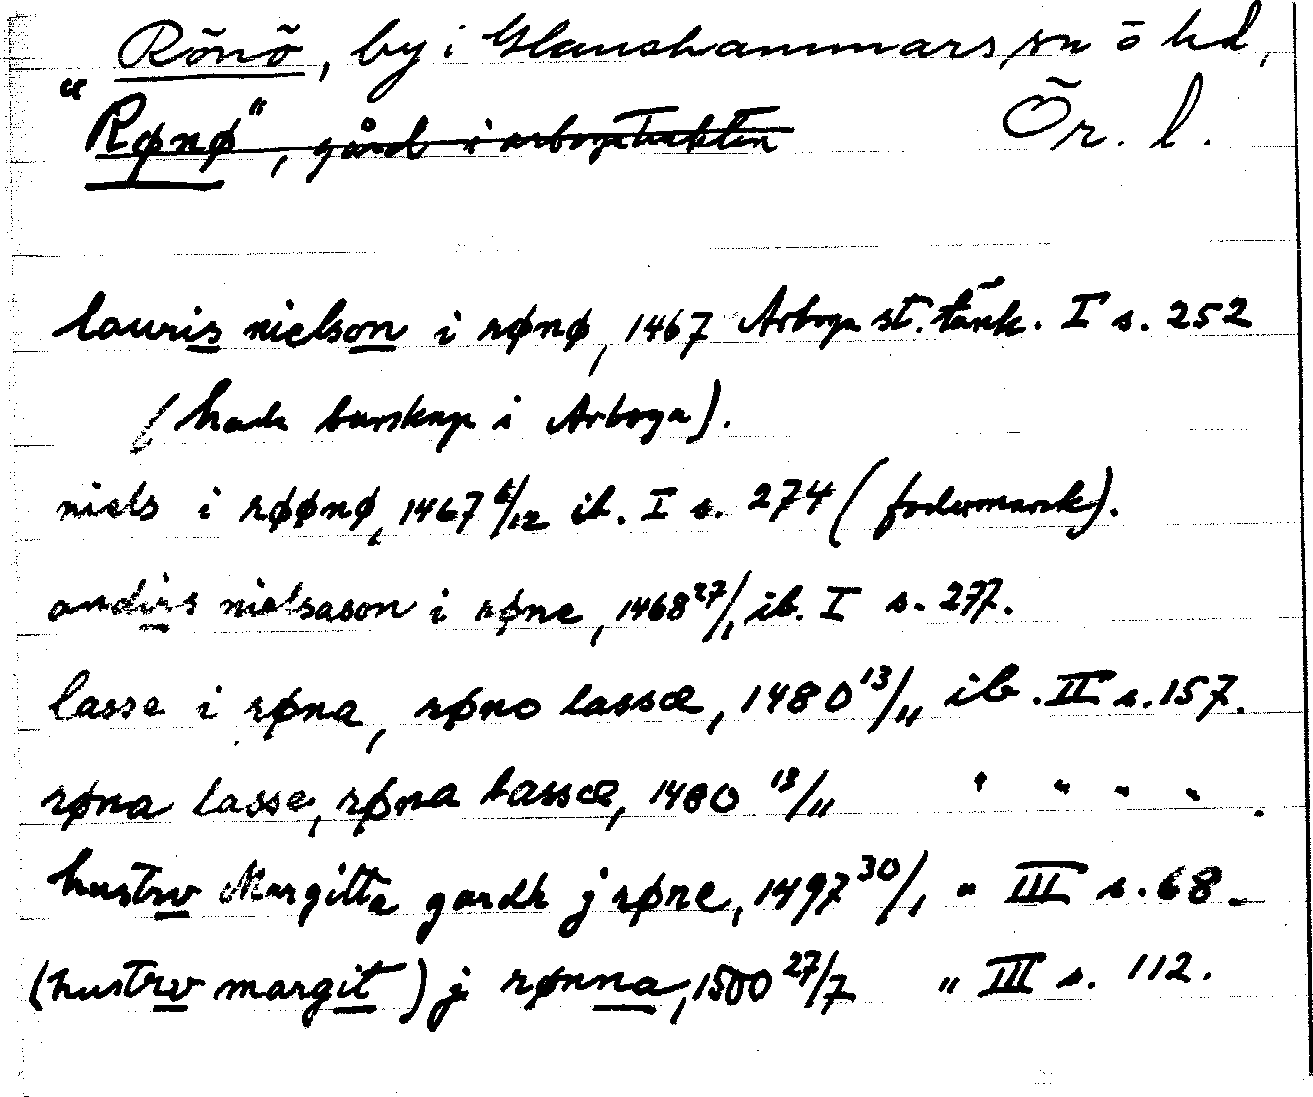 Rönö, by i Glanshammars sn ö hd,
"Rønø", gård i arbogatrakten Ör. l.
lauris nielson i rønø, 1467 Arboga st. tänk. I s. 252
(hade burskap i Arboga).
niels i røønø, 1467 6/12 ib. I s. 274 (fodermarsk).
andirs nielsason i røne, 1468 27/1, ib. I s. 277.
lasse i røna, røno lassæ, 1480 13/11 ib. II s. 157.
røna lasse, røna lassæ, 1480 13/11 " " " " .
hustrv Margitta gardh j røne, 1497 30/1 " III s. 68.
(hustrv margit) j rønna, 1500 27/7 " III s. 112.